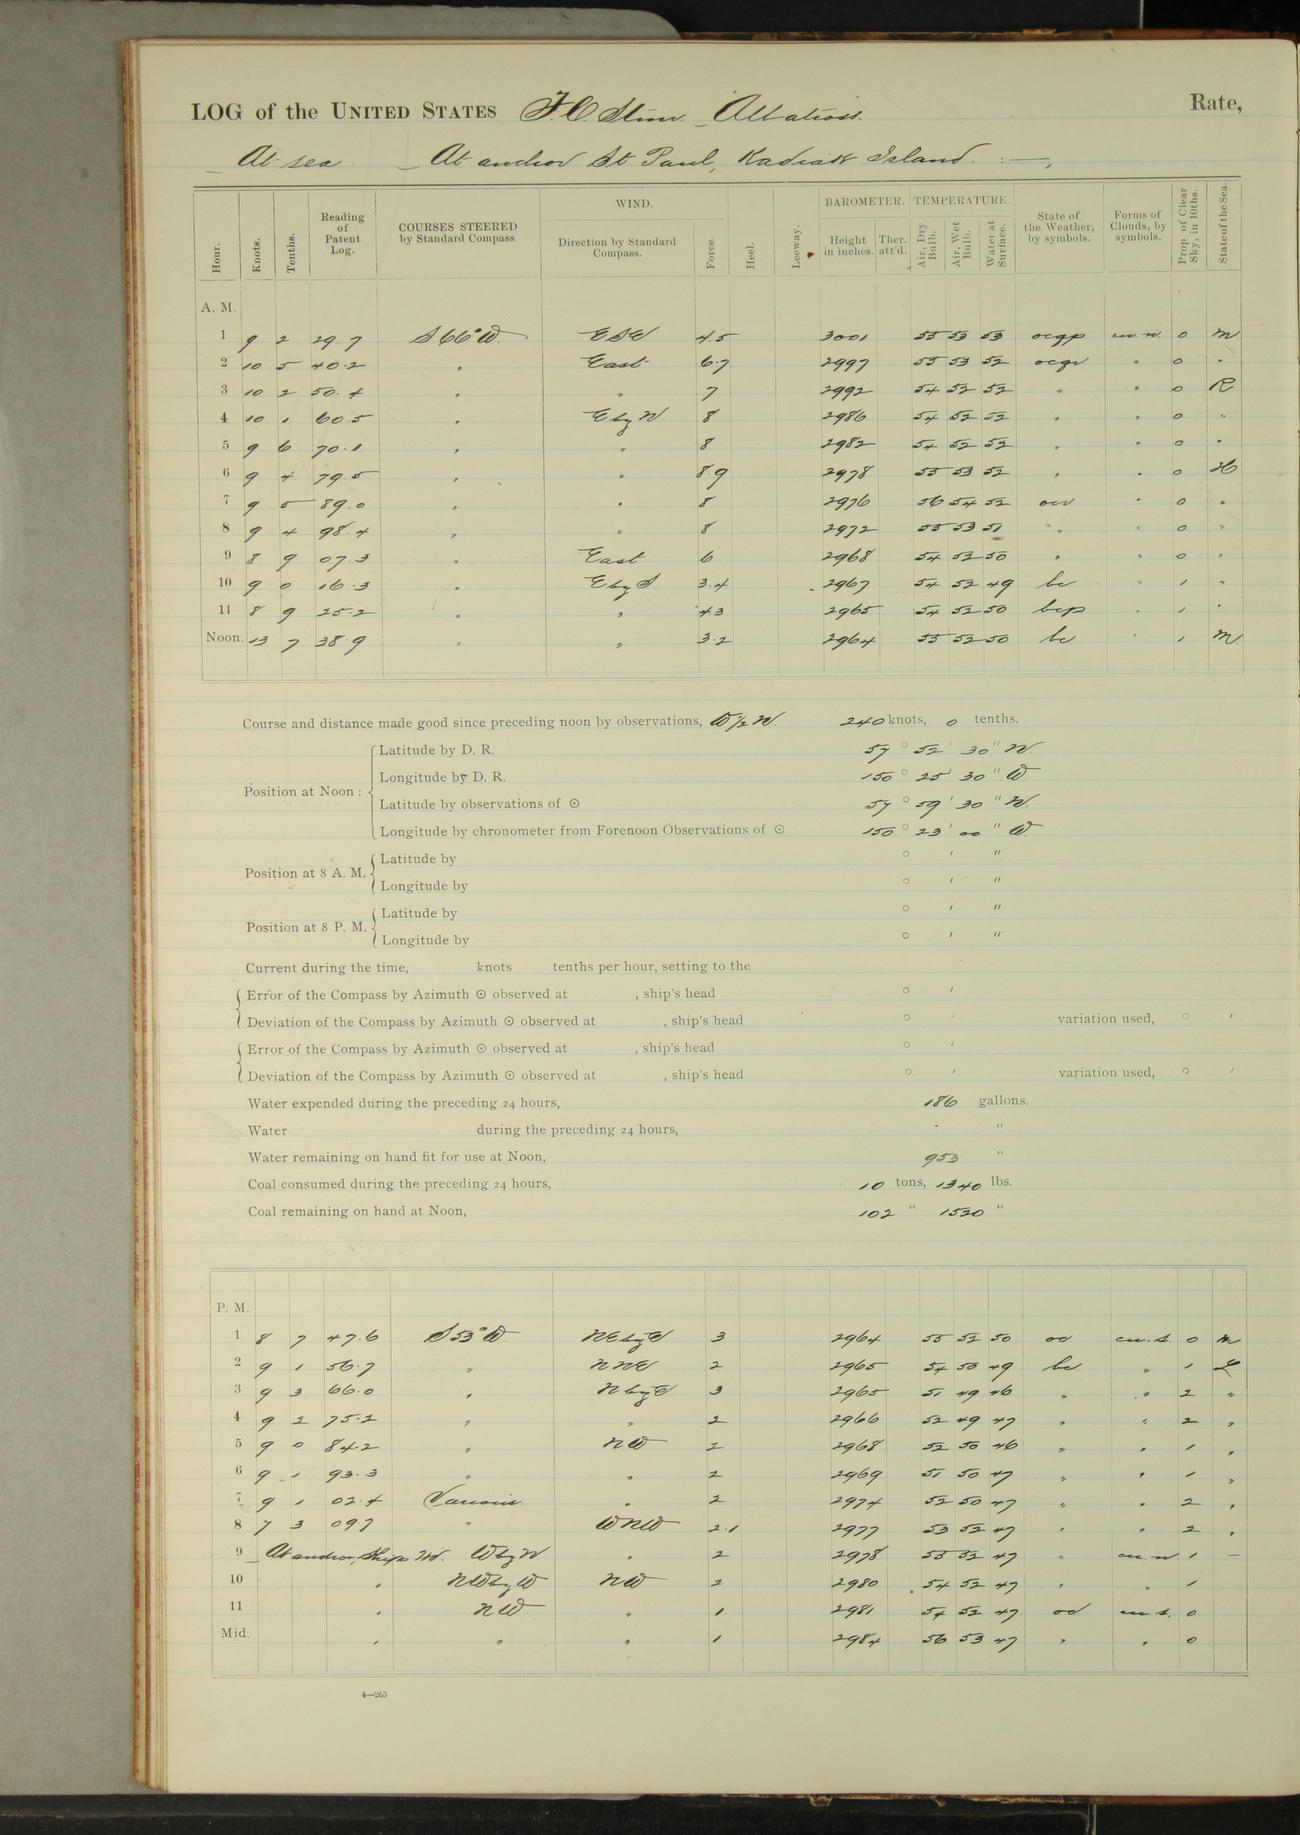 LOG of the UNITED STATES F. C. Stmr. Albatross. Rate,
At sea. At anchor St Paul, Kadiak Island.
Hour. Knots. Tenths. Reading of Patent Log. COURSES STEERED by Standard Compass. WIND. Direction by Standard Compass. Force. Heel. Leeway. BAROMETER. Height in inches. Ther. att'd. TEMPERATURE. Air, Dry Bulb. Air, Wet Bulb. Water at Surface. State of the Weather, by symbols. Forms of Clouds, by symbols. Prop. of Clear Sky, in 10ths. State of the Sea.
A. M.
1 9 2 29.7 S 66° W. ESE 4.5 3001 55 53 53 ocqp cu.n. 0 M
2 10 5 40.2 " East 6.7 2997 55 53 52 ocqr " 0 "
3 10 2 50.4 " " 7 2992 54 52 52 " " 0 R
4 10 1 60.5 " E by N 8 2986 54 52 52 " " 0 "
5 9 6 70.1 " " 8 2982 54 52 52 " " 0 "
6 9 4 79.5 " " 8.9 2978 55 53 52 " " 0 H
7 9 5 89.0 " " 8 2976 56 54 52 " 0 "
8 9 4 98.4 " " 8 2972 55 53 51 " " 0 "
9 8 9 07.3 " East 6 2968 54 52 50 " " 0 "
10 9 0 16.3 " E by S 3.4 2967 54 52 49 bc " 1 "
11 8 9 25.2 " " 4.3 2965 54 52 50 bcp " 1 "
Noon. 13 7 38.9 " " 3.2 2964 55 52 50 bc " 1 M
Course and distance made good since preceding noon by observations, W ½ N 240 knots, 0 tenths.
Position at Noon: Latitude by D. R. 57 ° 52 ' 30 " N.
Longitude by D. R. 150 ° 25 ' 30 " W.
Latitude by observations of ⊙ 57 ° 59 ' 30 " N.
Longitude by chronometer from Forenoon Observations of ⊙ 150 ° 23 ' 00 " W.
Position at 8 A. M. Latitude by ° ' "
Longitude by ° ' "
Position at 8 P. M. Latitude by ° ' "
Longitude by ° ' "
Current during the time, knots tenths per hour, setting to the
Error of the Compass by Azimuth ⊙ observed at , ship's head ° '
Deviation of the Compass by Azimuth ⊙ observed at , ship's head ° ' variation used, ° '
Error of the Compass by Azimuth ⊙ observed at , ship's head ° '
Deviation of the Compass by Azimuth ⊙ observed at , ship's head ° ' variation used, ° '
Water expended during the preceding 24 hours, 186 gallons.
Water during the preceding 24 hours, - "
Water remaining on hand fit for use at Noon, 953 "
Coal consumed during the preceding 24 hours, 10 tons, 1340 lbs.
Coal remaining on hand at Noon, 102 " 1520 "
P. M.
1 8 7 47.6 S 53° W. NE by E 3 2964 55 52 50 cu.s. 0 M
2 9 1 56.7 " NNE 2 2965 54 50 49 bc " 1 L
3 9 3 66.0 " N by E 3 2965 51 49 46 " " 2 "
4 9 2 75.2 " " 2 2966 52 49 47 " " 2 "
5 9 0 84.2 " NW 2 2968 52 50 46 " " 1 "
6 9 1 93.3 " " 2 2969 51 50 47 " " 1 "
7 9 1 02.4 Various " 2 2974 52 50 47 " " 2 "
8 7 3 09.7 " WNW 2.1 2977 53 52 47 " " 2 "
9 At anchor, Ship's Hd. W by N " 2 2978 55 52 47 " cu.n 1 —
10 " NW by W NW 2 2980 54 52 47 " " 1
11 " NW " 1 2981 54 52 47 cu.s. 0
Mid. " " " 1 2984 56 53 47 " " 0
4—265